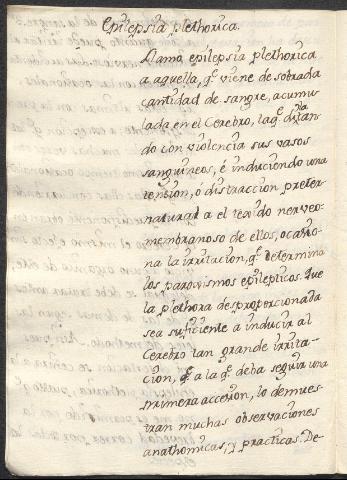 Epilepsia plethorica.
Llamo epilepsia plethorica
a aquella, qe. viene de sobrada
cantidad de sangre, acumu
lada en el Cerebro, la qe. dila
tando con violencia sus vasos
sanguineos, é induciendo una
tension, o distraccion preter
natural a el texido nerveo-
membranoso de ellos, ocasio
na la irritacion, qe. determina
los paroxismos epilepticos. Que
la plethora desproporcionada
sea suficiente á inducir al
Cerebro tan grande irrita-
cion, qe. a la qe. deba seguir una
primera accesion, lo demues
tran muchas observaciones
anathomicas, y practicas. De-